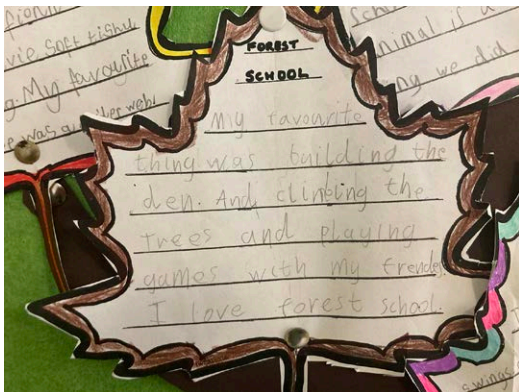 FOREST
SCHOOL
My favourite
thing was building the
den. And climbing the
trees and playing
games with my frendes
I love forest school.
vie soft
g. My favourite
e was a
scho
nimal is a
ny we did
swings